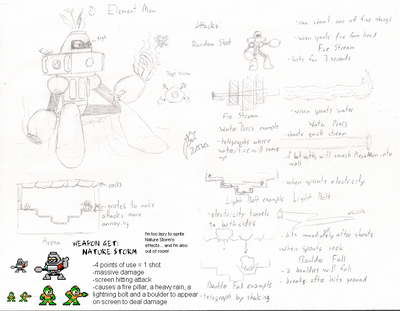 Element Man
Attacks:
Random Shot
- can shoot one of five things
- when spouts fire from head
Fire Stream
- lasts for 3 seconds
Top View
Fire Stream
- when spouts water
Water Press example
Water Press
- telegraphs where water/fire will come up
- shoots quick stream
- if hit with will smash MegaMan into wall
- when spouts electricity
Light Bolt example
Light Bolt
- electricity travels to both sides
- hits immediately after shoots
- when spouts rock
Boulder Fall
- 2 boulders will fall
- breaks after hits ground
Boulder Fall example
- telegraph by shaking
rocks
grates to make attacks more annoying
Arena
WEAPON GET:
NATURE STORM
I'm too lazy to sprite
Nature Storm's
effects... and I'm also
out of room!
-4 points of use = 1 shot
-massive damage
-screen hitting attack
-causes a fire pillar, a heavy rain, a
lightning bolt and a boulder to appear
on screen to deal damage